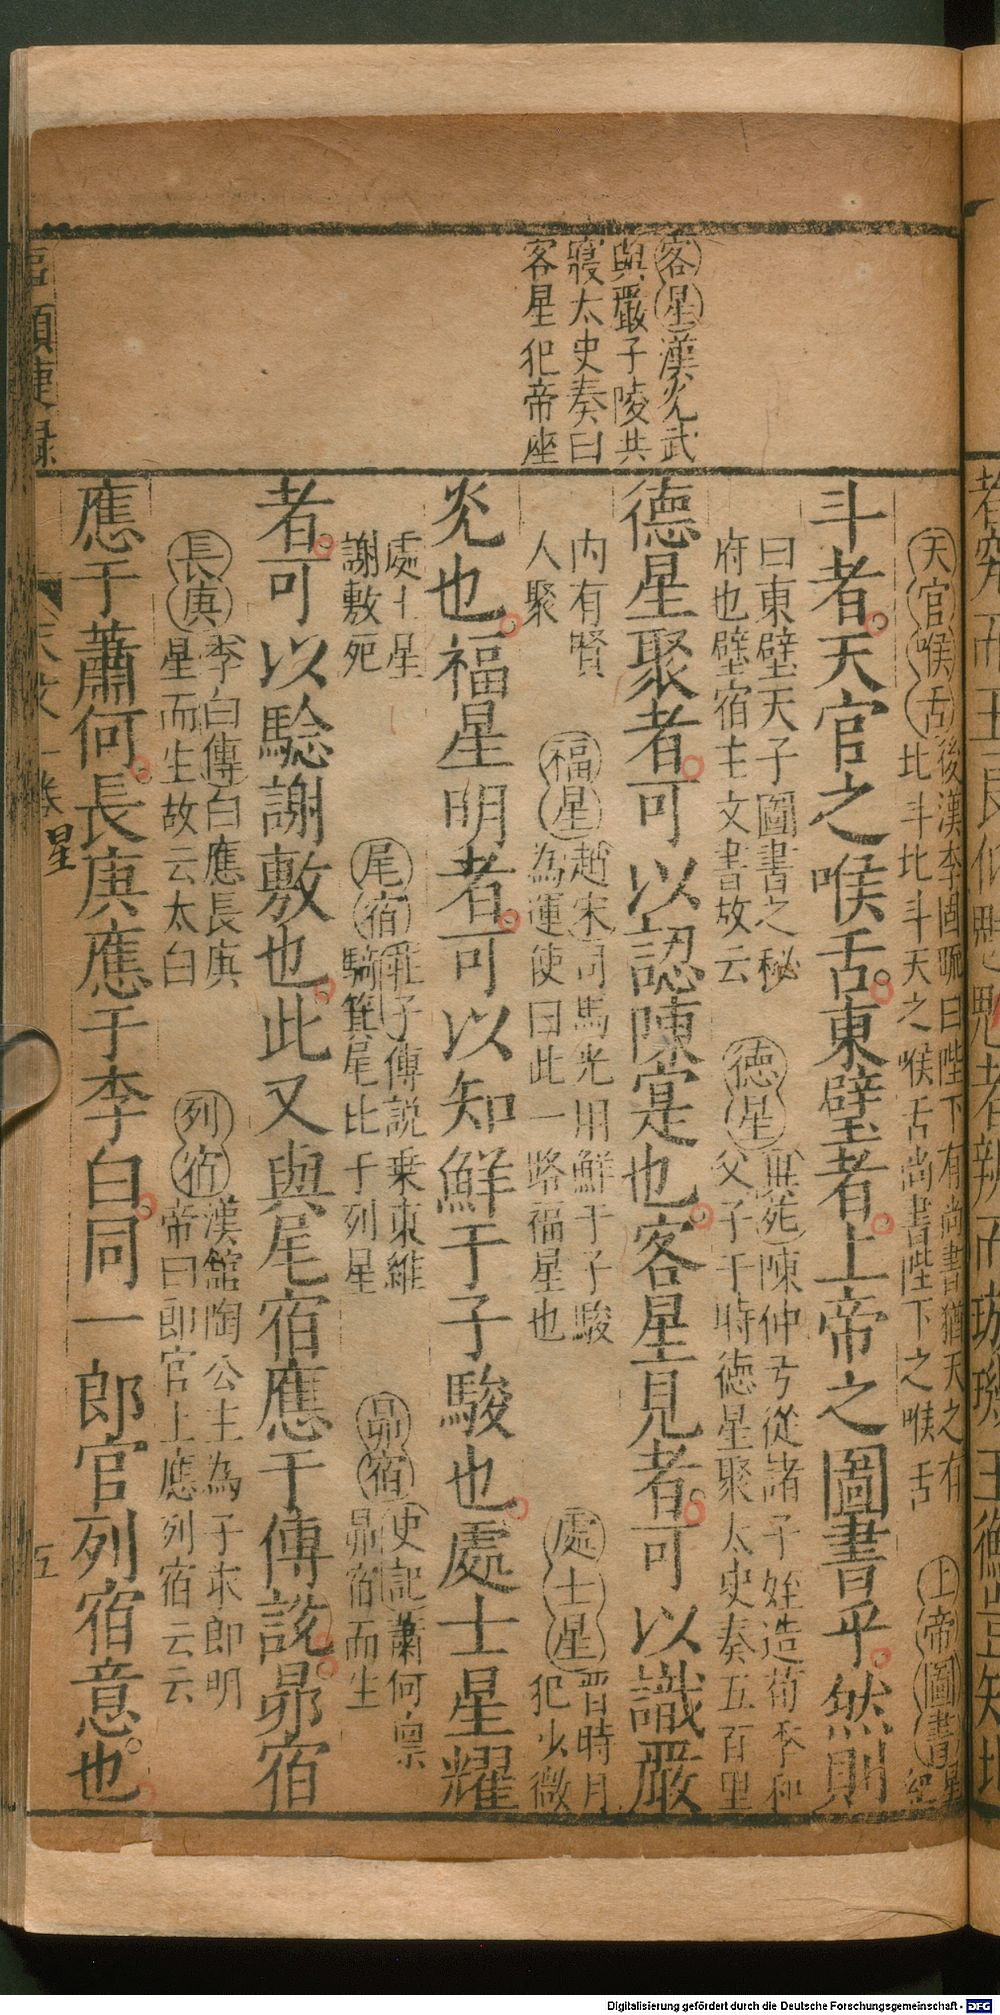 客星漢光武
與嚴子陵共
寢太史奏曰
客星犯帝座
天官喉舌後漢李固疏曰陛下有尚書猶天之有
北斗北斗天之喉舌尚書陛下之喉舌
上帝圖書星
經
斗者天官之喉舌東壁者上帝之圖書乎然則
曰東壁天子圖書之秘
府也壁宿主文書故云
德星異苑陳仲弓從諸子姪造荀季和
父子于時德星聚太史奏五百里
德星聚者可以認陳寔也客星見者可以識嚴
内有賢
人聚
福星趙宋司馬光用鮮于子駿
為運使曰此一路福星也
處士星晉時月
犯少微
光也福星明者可以知鮮于子駿也處士星耀
處士星
謝敷死
尾宿莊子傳説乗東維
騎箕尾比于列星
昴宿史記蕭何禀
昴宿而生
者可以驗謝敷也此又與尾宿應于傳說昴宿
長庚李白傳白應長庚
星而生故云太白
列宿漢館陶公主為子求郎明
帝曰郎官上應列宿云云
應于蕭何長庚應于李白同一郎官列宿意也
類捷録
天文一卷
星
五
Digitalisierung gefördert durch die Deutsche Forschungsgemeinschaft - DFG